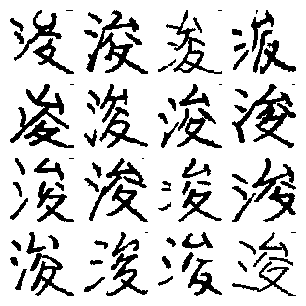 浚浚浚浚
浚浚浚浚
浚浚浚浚
浚浚浚浚